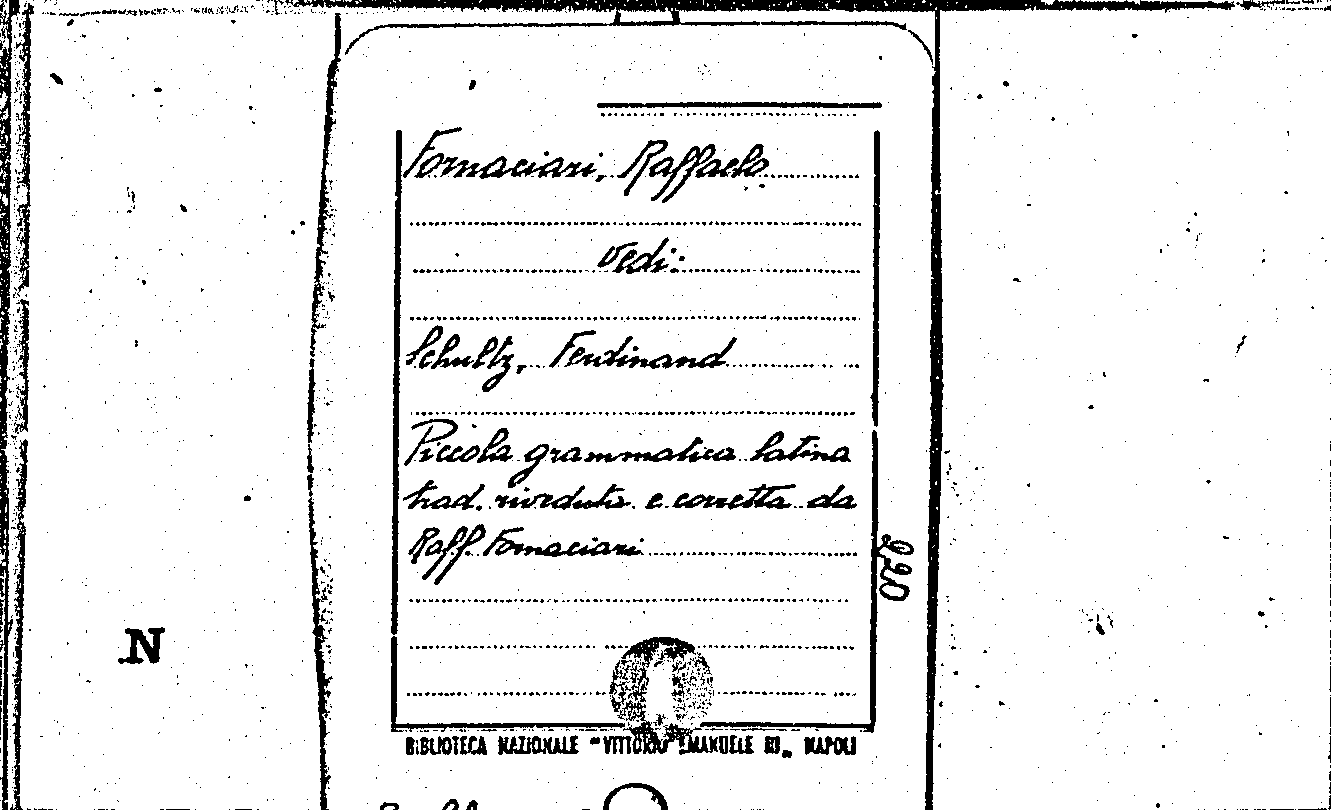 Fornaciari, Raffaelo
Vedi:
Schultz, Ferdinand
Piccola grammatica latina
trad. riveduta e corretta da
Raff. Fornaciari
220
N
BIBLIOTECA NAZIONALE "VITTORIO EMANUELE III„ NAPOLI